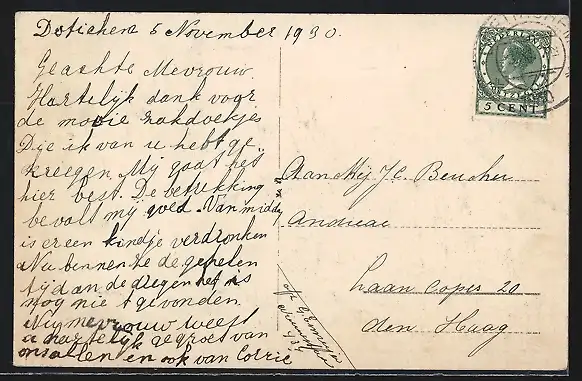 Dotichem 5 November 1930.
Geachte Mevrouw.
Hartelijk dank voor
de mooie zakdoekjes
Die ik van u hebt ge
kreegen. Mij gaat het
hier best. De betrekking
bevalt mij goed. Van middag
is er een kindje verdronken
Nu bennen ze de geheelen
tijd an de diegen het is
nog niet gevonden.
Nu mevrouw weest
u hartelijk gegroet van
ons allen en ook van Corrie
NEDERLAND
5 CENT
Aan Mij J.C. Beucker
Andreae
Laan Copes 20
den Haag